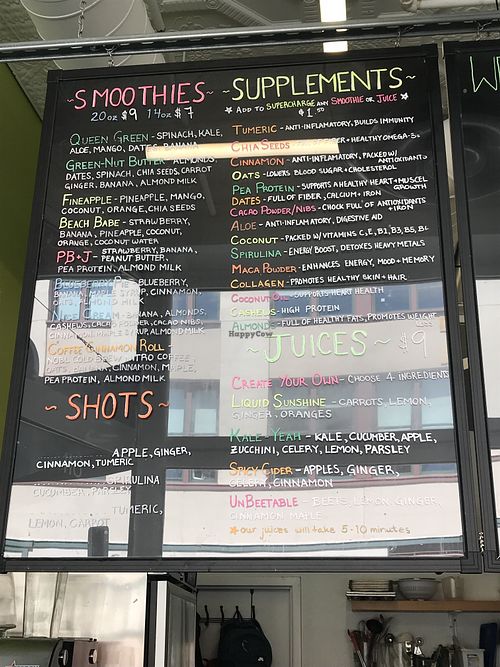 ~SMOOTHIES~
20oz $9 14oz $7
QUEEN GREEN - SPINACH, KALE,
ALOE, MANGO, DATES, BANANA
GREEN-NUT BUTTER - ALMONDS,
DATES, SPINACH, CHIA SEEDS, CARROT
GINGER, BANANA, ALMOND MILK
FINEAPPLE - PINEAPPLE, MANGO,
COCONUT, ORANGE, CHIA SEEDS
BEACH BABE - STRAWBERRY,
BANANA, PINEAPPLE, COCONUT,
ORANGE, COCONUT WATER
PB+J - STRAWBERRY, BANANA,
PEANUT BUTTER,
PEA PROTEIN, ALMOND MILK
BLUEBERRY PIE - BLUEBERRY,
BANANA, MAPLE SYRUP, CINNAMON,
OATS, ALMOND MILK
NICE CREAM - BANANA, ALMONDS,
CASHEWS, CACAO POWDER, CACAO NIBS,
CINNAMON, MAPLE SYRUP, ALMOND MILK
COFFEE CINNAMON ROLL -
NOBL COLD BREW NITRO COFFEE,
OATS, BANANA, CINNAMON, MAPLE,
PEA PROTEIN, ALMOND MILK
~SHOTS~
APPLE, GINGER,
CINNAMON, TUMERIC
SPIRULINA
CUCUMBER, PARSLEY
TUMERIC,
LEMON, CARROT
~SUPPLEMENTS~
ADD TO SUPERCHARGE ANY SMOOTHIE OR JUICE
$1.50
TUMERIC - ANTI-INFLAMATORY, BUILDS IMMUNITY
CHIA SEEDS - FIBER + HEALTHY OMEGA-3s
CINNAMON - ANTI-INFLAMATORY, PACKED W/ ANTIOXIDANTS
OATS - LOWERS BLOOD SUGAR + CHOLESTEROL
PEA PROTEIN - SUPPORTS A HEALTHY HEART + MUSCEL GROWTH
DATES - FULL OF FIBER, CALCIUM + IRON
CACAO POWDER/NIBS - CHOCK FULL OF ANTIOXIDANTS + IRON
ALOE - ANTI-INFLAMATORY, DIGESTIVE AID
COCONUT - PACKED W/ VITAMINS C, E, B1, B3, B5, B6
SPIRULINA - ENERGY BOOST, DETOXES HEAVY METALS
MACA POWDER - ENHANCES ENERGY, MOOD + MEMORY
COLLAGEN - PROMOTES HEALTHY SKIN + HAIR
COCONUT OIL - SUPPORTS HEART HEALTH
CASHEWS - HIGH PROTEIN
ALMONDS - FULL OF HEALTHY FATS, PROMOTES WEIGHT LOSS
HappyCow
~JUICES~ $9
CREATE YOUR OWN - CHOOSE 4 INGREDIENTS
LIQUID SUNSHINE - CARROTS, LEMON,
GINGER, ORANGES
KALE-YEAH - KALE, CUCUMBER, APPLE,
ZUCCHINI, CELERY, LEMON, PARSLEY
SPICY CIDER - APPLES, GINGER,
CELERY, CINNAMON
UNBEETABLE - BEETS, LEMON, GINGER,
CINNAMON, MAPLE
*our juices will take 5-10 minutes